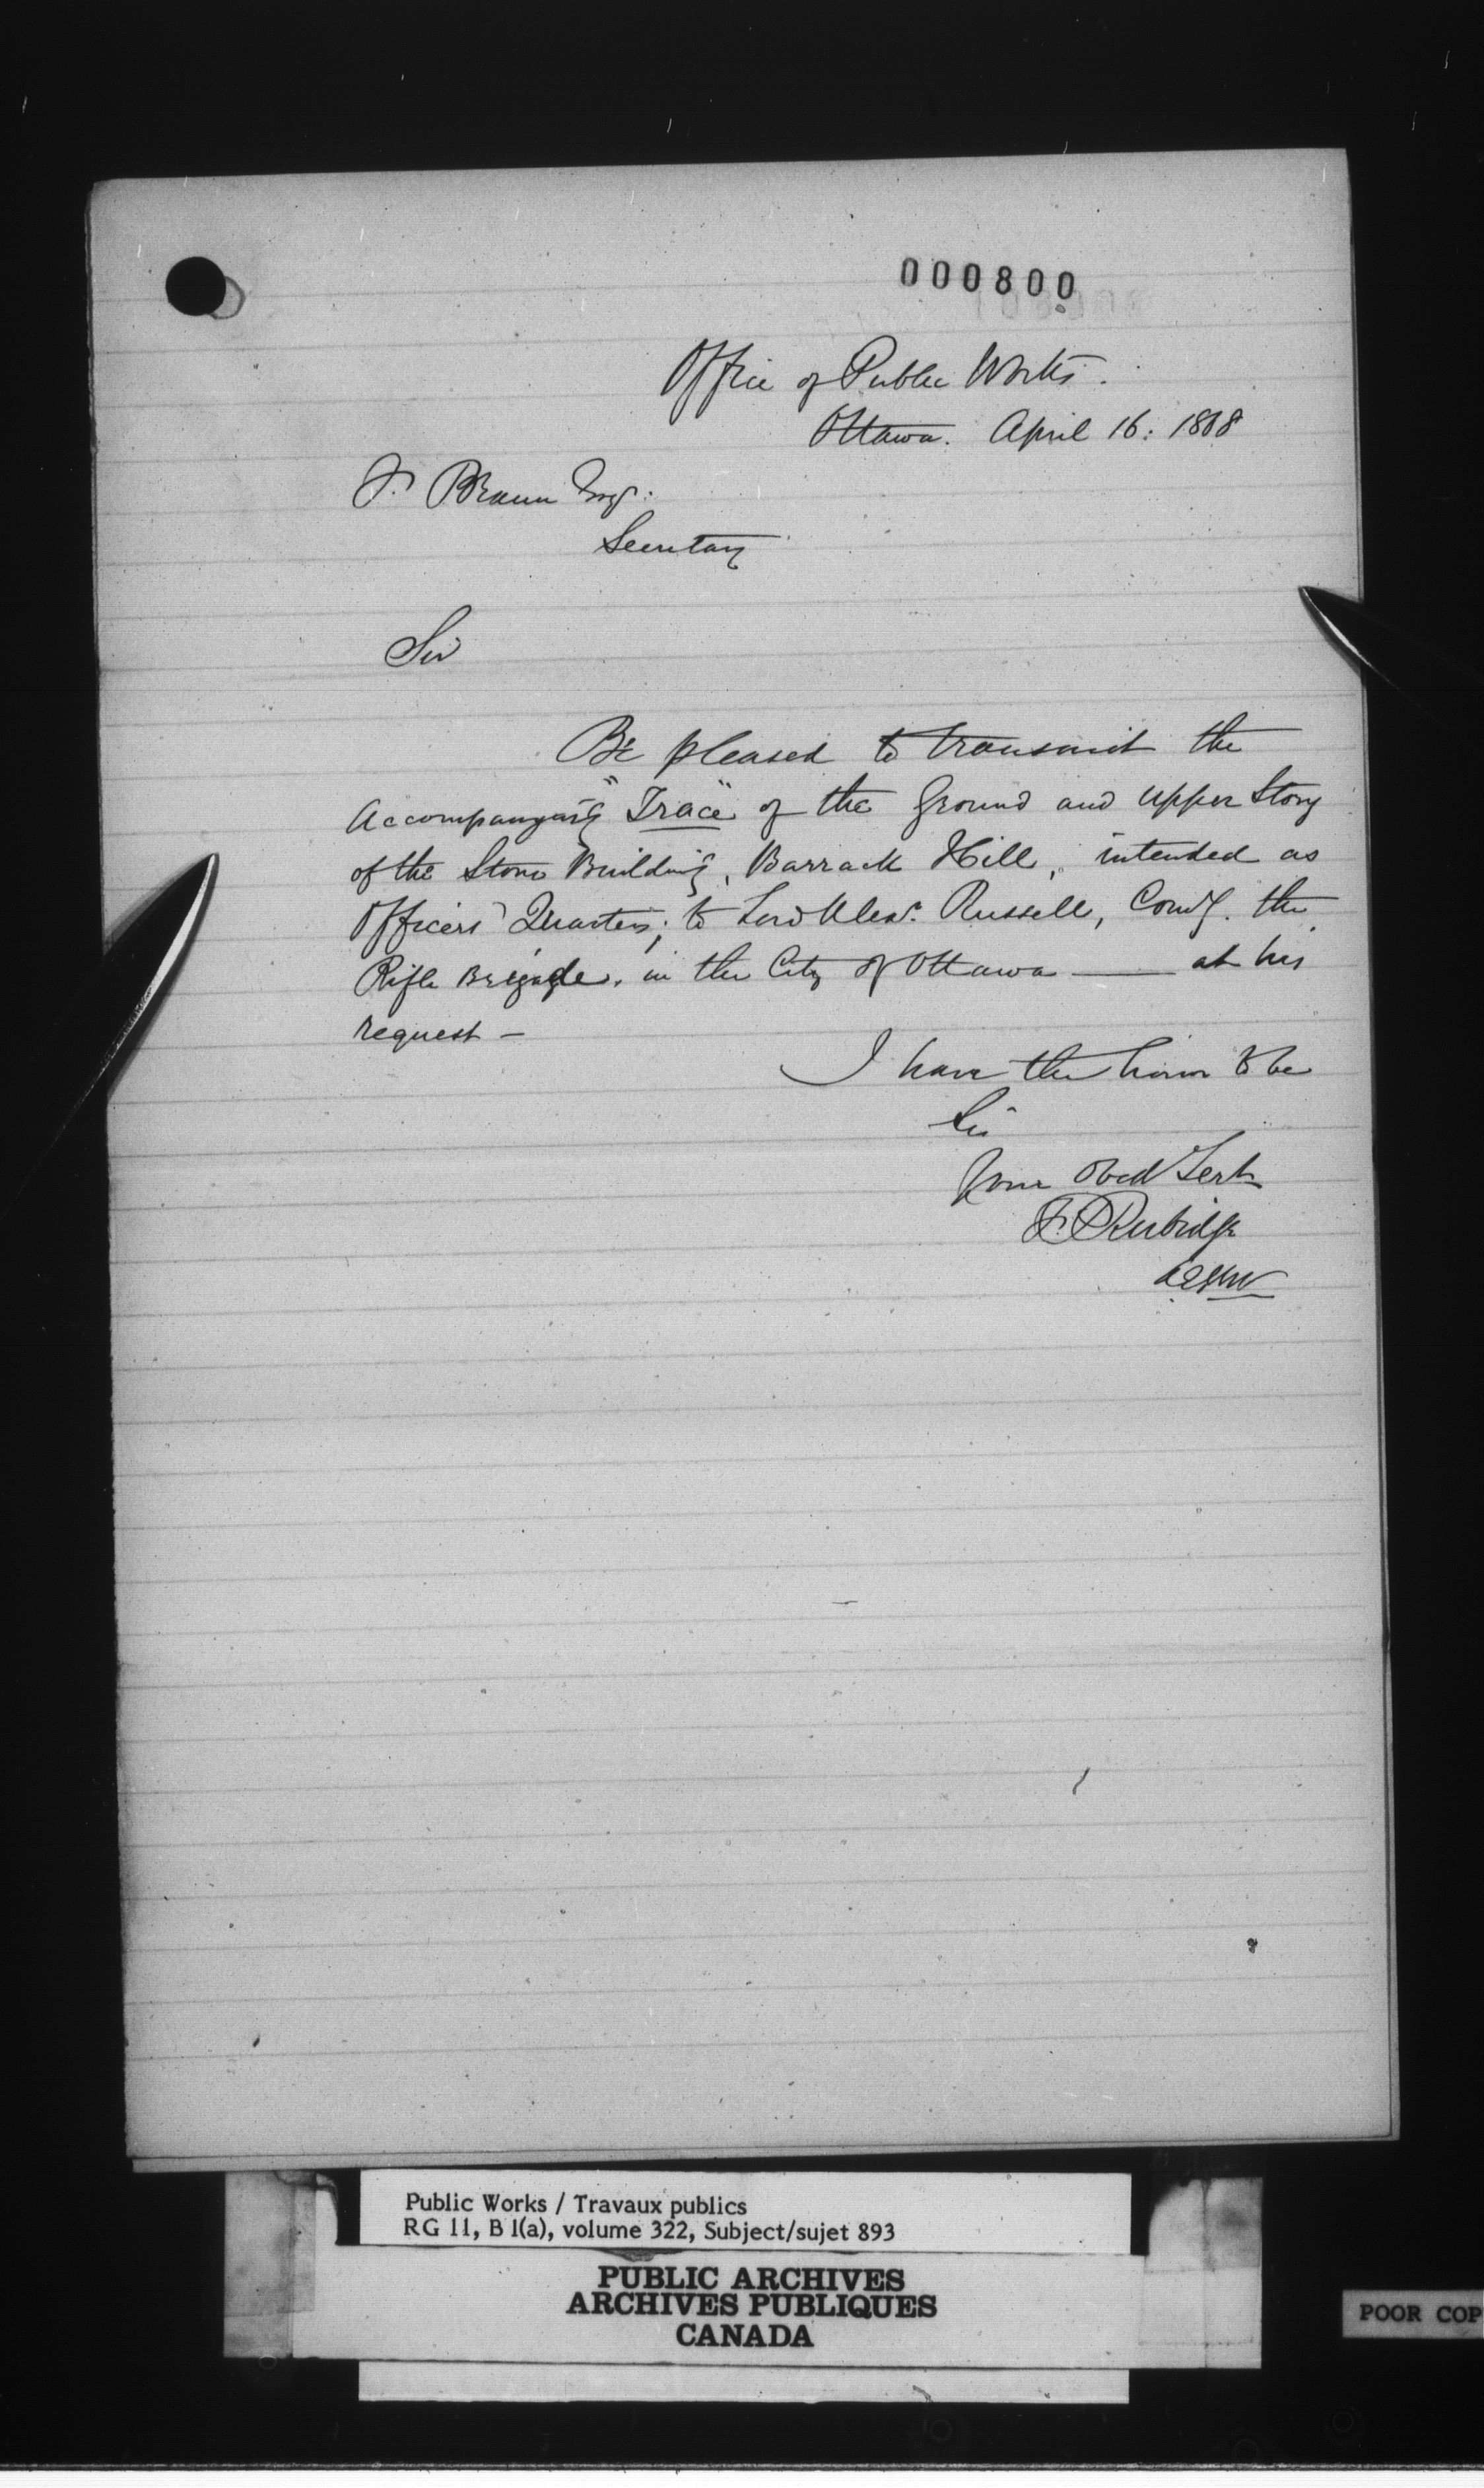 000800
Office of Public Works.
Ottawa. April 16: 1868
F. Braun Esqr.
Secretary
Sir
Be pleased to transmit the
Accompanying "Trace" of the Ground and Upper Story
of the Stone Building, Barrack Hill, intended as
Officers' Quarters; to Lord Alexr. Russell, Comdg. the
Rifle Brigade, in the City of Ottawa — at his
request —
I have the honor to be
Sir
Your Obed Servt
F. P. Rubidge
Public Works / Travaux publics
RG 11, B 1(a), volume 322, Subject/sujet 893
PUBLIC ARCHIVES
ARCHIVES PUBLIQUES
CANADA
POOR COP